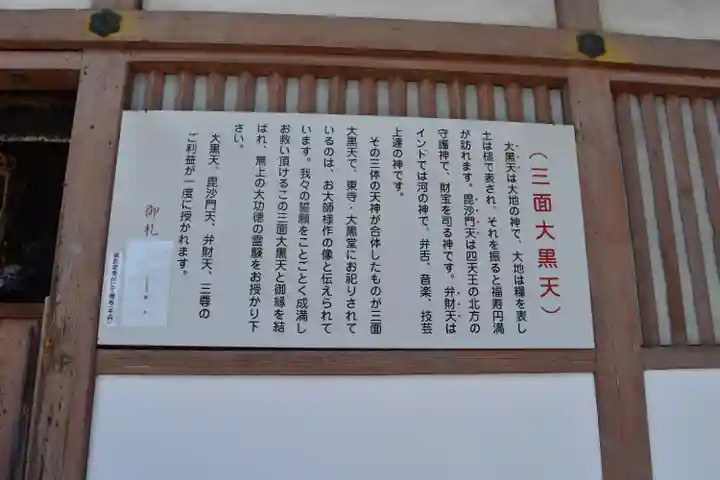 （三面大黒天）
大黒天は大地の神で、大地は糧を表し
土は槌で表され、それを振ると福寿円満
が訪れます。毘沙門天は四天王の北方の
守護神で、財宝を司る神です。弁財天は
インドでは河の神で、弁舌、音楽、技芸
上達の神です。
その三体の天神が合体したものが三面
大黒天で、東寺・大黒堂にお祀りされて
いるのは、お大師様作の像と伝えられて
います。我々の誓願をことごとく成満し
お救い頂けるこの三面大黒天と御縁を結
ばれ、無上の大功徳の霊験をお授かり下
さい。
大黒天、毘沙門天、弁財天、三尊の
ご利益が一度に授かれます。
御札